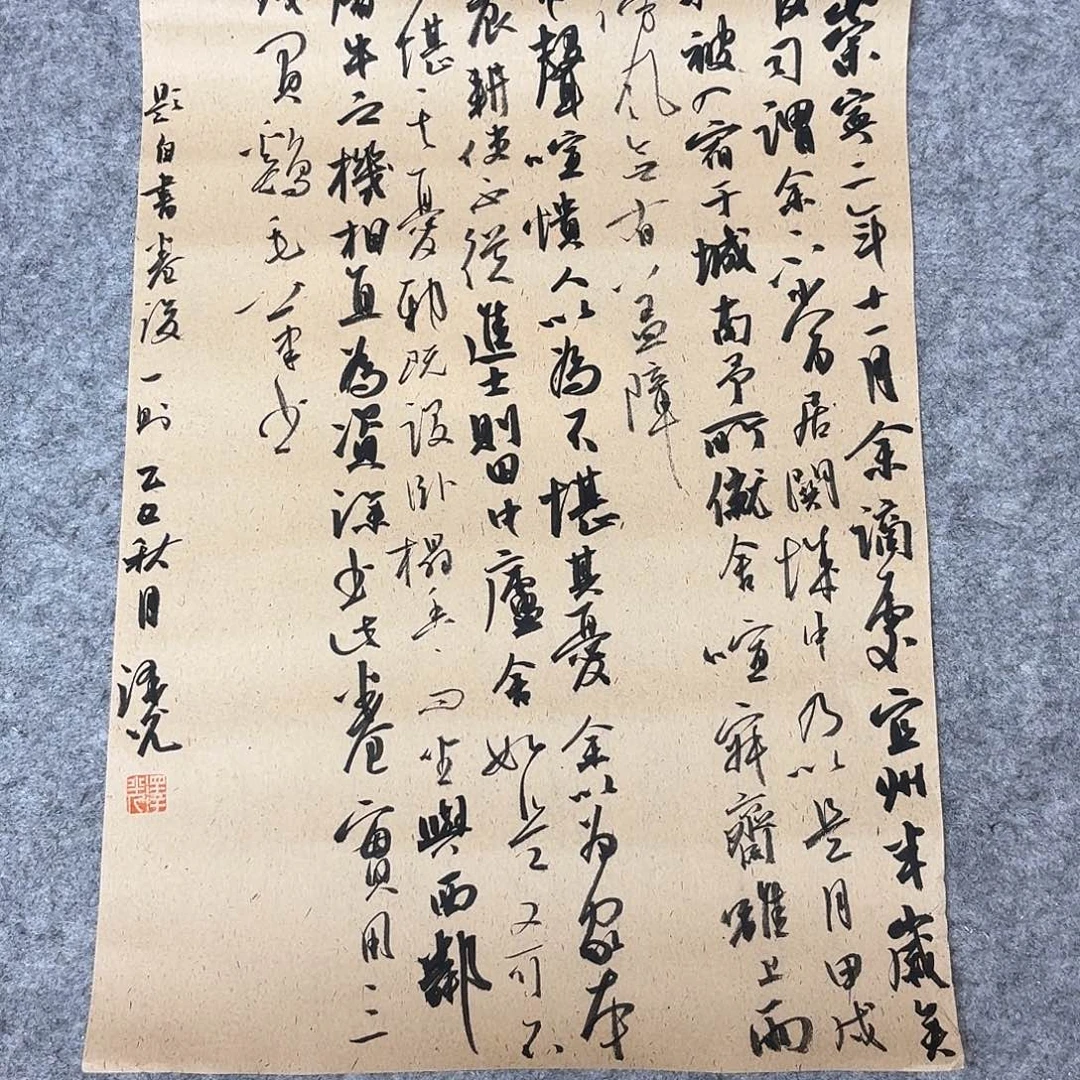 崇寧二年十一月余謫處宜州半歲矣
司謂余不當居關城中乃以是月甲戌
被入宿子城南予所僦舍喧寂齋雖上雨
傍風無有蓋障
聲喧憒人以為不堪其憂余以為家本
農耕使不從進士則田中廬舍如是又可不
堪其憂耶既設臥榻焚香而坐與西鄰
屠牛之機相直為資深書此卷實用三
錢買鷄毛筆書
題自書卷後一則乙巳秋月